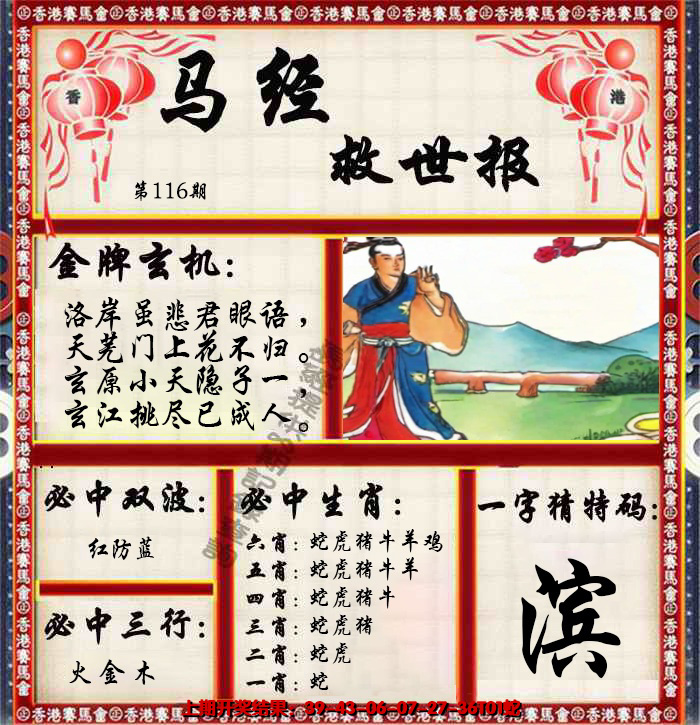 香港賽馬會
香 港
马经
救世报
第116期
金牌玄机:
洛岸虽悲君眼语，
天芜门上花不归。
玄原小天隐子一，
玄江挑尽已成人。
必中双波:
红防蓝
必中三行:
火金木
必中生肖:
六肖: 蛇虎猪牛羊鸡
五肖: 蛇虎猪牛羊
四肖: 蛇虎猪牛
三肖: 蛇虎猪
二肖: 蛇虎
一肖: 蛇
一字猜特码:
滨
上期开奖结果: 39-43-06-07-27-36T01蛇